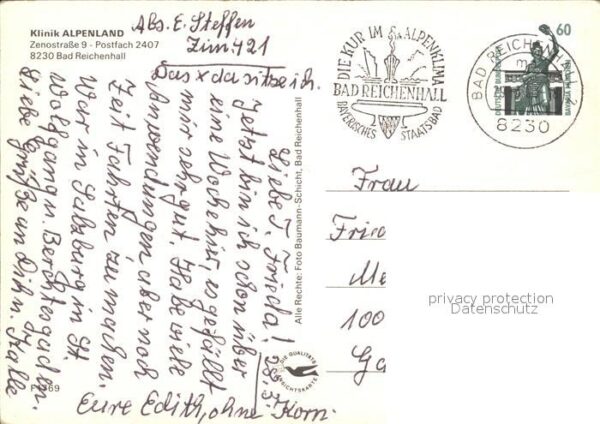 Klinik ALPENLAND
Zenostraße 9 - Postfach 2407
8230 Bad Reichenhall
Abs. E. Steffen
Zim 421
Das x da sitze ich.
Liebe T. Frieda!
Jetzt bin ich schon über
eine Woche hier, es gefällt
mir sehr gut. Habe viele
Anwendungen, aber noch
Zeit Fahrten zu machen.
War in Salzburg in St.
Wolfgang u. Berchtesgaden.
Liebe Grüße an Dich u. Kalle
Eure Edith, ohne Korn.
Alle Rechte: Foto Baumann-Schicht, Bad Reichenhall
DIE KUR IM ALPENKLIMA
BAD REICHENHALL
BAYERISCHES STAATSBAD
BAD REICHENHALL 2
8230
60
DEUTSCHE BUNDESPOST
Frau
Frie
Me
100
Ga
privacy protection
Datenschutz